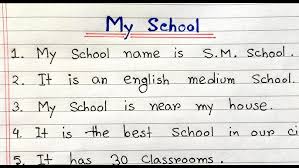 My School
1. My School name is S.M. School.
2. It is an english medium School.
3. My School is near my house.
4. It is the best School in our
5. It has 30 Classrooms.